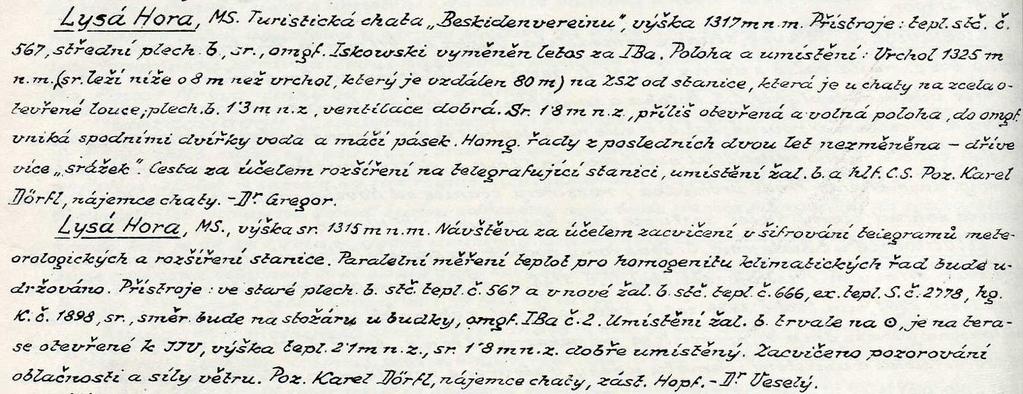 Lysá Hora, MS. Turistická chata „Beskidenvereinu", výška 1317 m n. m. Přístroje: tepl. stč. č.
567, střední plech. b, sr., omgf. Iskowski vyměněn letos za IBa. Poloha a umístění: Vrchol 1325 m
n. m. (sr. leží níže o 8 m než vrchol, který je vzdálen 80 m) na ZSZ od stanice, která je u chaty na zcela o-
tevřené louce; plech. b. 1'3 m n. z., ventilace dobrá. Sr. 1'8 m n. z., příliš otevřená a volná poloha, do omgf.
vniká spodními dvířky voda a máčí pásek. Homg. řady z posledních dvou let nezměněna – dříve
více „srážek". Cesta za účelem rozšíření na telegrafující stanici, umístění žal. b. a hlf. C. S. Poz. Karel
Dörfl, nájemce chaty. – Dr Gregor.
Lysá Hora, MS., výška sr. 1315 m n. m. Návštěva za účelem zacvičení v šifrování telegramů mete-
orologických a rozšíření stanice. Paralelní měření teplot pro homogenitu klimatických řad bude u-
držováno. Přístroje: ve staré plech. b. stč. tepl. č. 567 a v nové žal. b. stč. tepl. č. 666, ex. tepl. S. č. 2778, hg.
K. č. 1898, sr., směr. bude na stožáru u budky, omgf. IBa č. 2. Umístění žal. b. trvale na ⊙, je na tera-
se otevřené k JJV, výška tepl. 2'1 m n. z., sr. 1'8 m n. z. dobře umístěný. Zacvičeno pozorování
oblačnosti a síly větru. Poz. Karel Dörfl, nájemce chaty, zást. Hopf. – Dr Veselý.